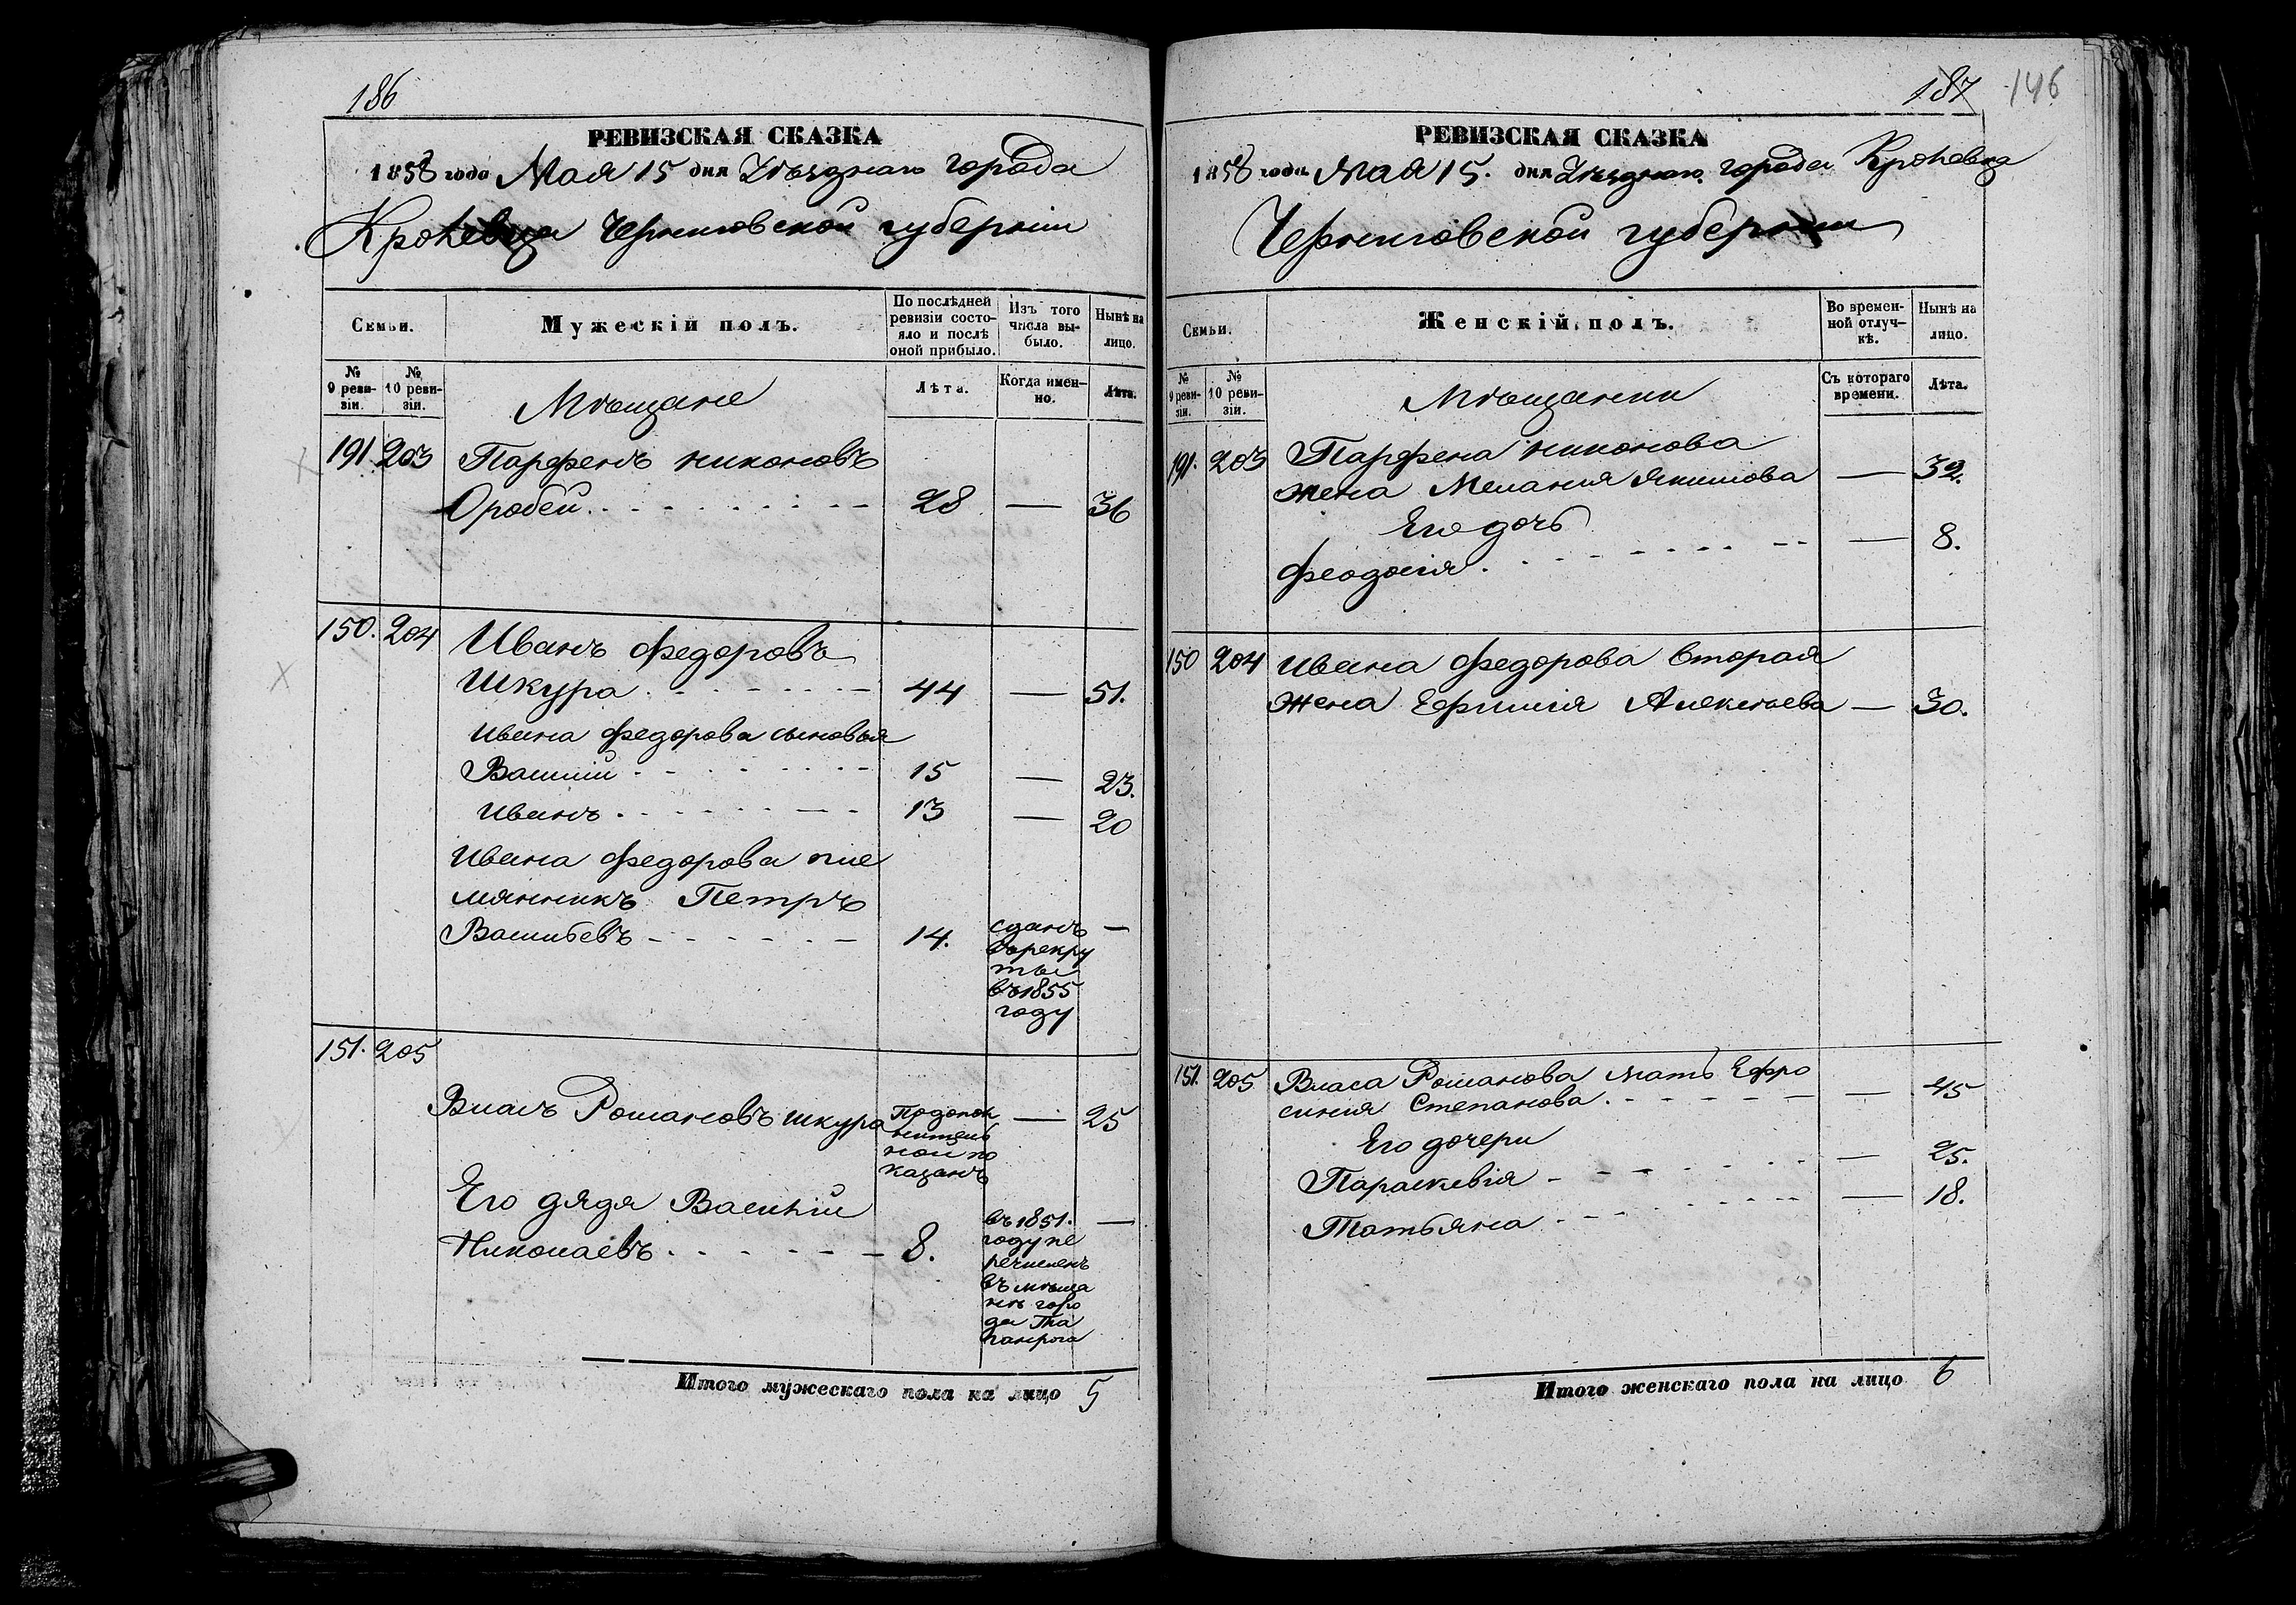 186
РЕВИЗСКАЯ СКАЗКА
1858 года Мая 15 дня Уѣзднаго города
Кролевца Черниговской губерніи
Семьи.
Мужескій полъ.
По послѣдней ревизіи состояло и послѣ оной прибыло.
Изъ того числа выбыло.
Нынѣ на лицо.
№ 9 ревизіи.
№ 10 ревизіи.
Мѣщане
Лѣта.
Когда именно.
Лѣта.
191. 203 Парфенъ Никоновъ
Оробей 28 — 36
150. 204 Иванъ Федоровъ
Шкура 44 — 51.
Ивана Федорова сыновья
Василій 15 — 23.
Иванъ 13 — 20
Ивана Федорова пле
мянникъ Петръ
Васильевъ 14. —
сданъ
въ рекру
ты
въ 1855
году
151. 205
Власъ Романовъ Шкура — 25
По допол
нитель
ной по
казанъ
Его дядя Василій
Николаевъ 8. —
въ 1851.
году пе
речисленъ
въ мѣща
не горо
да Таганрога
Итого мужескаго пола на лицо 5
187
146
РЕВИЗСКАЯ СКАЗКА
1858 года Мая 15. дня Уѣзднаго города Кролевца
Черниговской губерніи
Семьи.
Женскій полъ.
Во временной отлучкѣ.
Нынѣ на лицо.
№ 9 ревизіи.
№ 10 ревизіи.
Мѣщанки
Съ котораго времени.
Лѣта.
191. 203 Парфена Никонова
жена Мелания Якимова — 32.
Его дочь
Феодосія — 8.
150 204 Ивана Федорова вторая
жена Ефимія Алексѣева — 30.
151. 205 Власа Романова мать Ефро
синия Степанова — 45
Его дочери
Параскевія — 25.
Татьяна — 18.
Итого женскаго пола на лицо 6